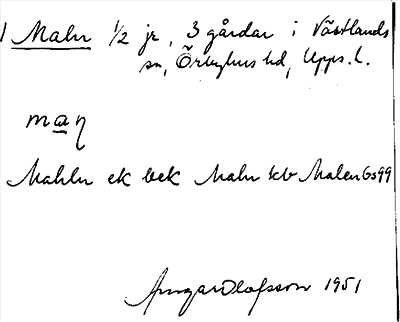 1 Maln 1/2 jr, 3 gårdar i Västlands
sn, Örbyhus hd, Upps. l.
maη
Mahln ek bek Maln kb Malen Gs 99
Ansgar Olofsson 1951